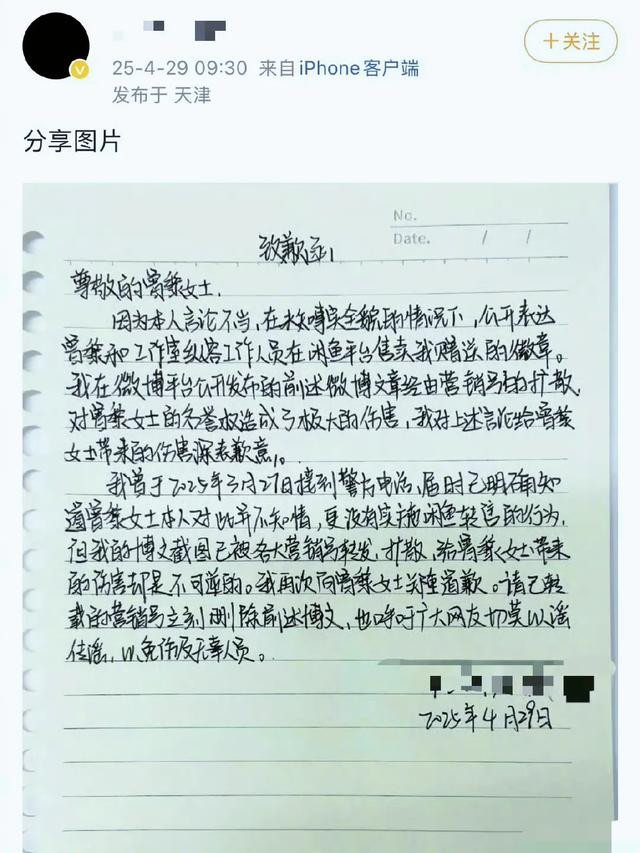 25-4-29 09:30 来自iPhone客户端
发布于 天津
+关注
分享图片
No.
Date. / /
致歉函
尊敬的曾黎女士.
因为本人言论不当,在未知晓全貌的情况下,公开表达
曾黎和工作室纵容工作人员在闲鱼平台售卖我赠送的徽章。
我在微博平台公开发布的前述微博文章经由营销号的扩散,
对曾黎女士的名誉权造成了极大的伤害,我对上述言论给曾黎
女士带来的伤害深表歉意。
我曾于2025年3月27日接到警方电话,届时已明确知
道曾黎女士本人对此并不知情,更没有实施闲鱼转售的行为,
但我的博文截图已被各大营销号转发、扩散,给曾黎女士带来
的伤害却是不可逆的。我再次向曾黎女士关阵道歉。请已转
载的营销号立刻删除前述博文,也呼吁广大网友切莫以谣
传谣,以免伤及无辜人员。
2025年4月29日